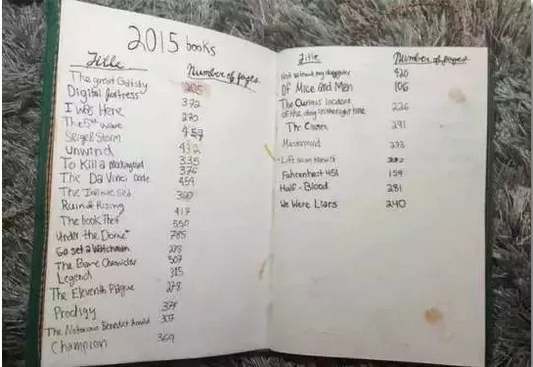 2015 books
Title
Number of pages
The great Gatsby 205
Digital fortress 372
I Was Here 270
The 5th wave 457
Seige & Storm
unwind 335
To Kill a Mockingbird 376
The Da Vinci code 454
The Infinite sea 300
Ruin & Rising 417
The book Thief 550
Under the Dome 785
Go set a Watchman 278
The Bane Chronicles 507
Legend 315
The Eleventh Plague 278
Prodigy 374
The Notorious Benedict Arnold 307
Champion 369
Title
Number of pages
Not without my daughter 420
Of Mice and Men 106
The Curious Incident
of the dog in the night time 226
The 291
Mastermind 293
Fahrenheit 451 159
Half-Blood 281
We Were Liars 240